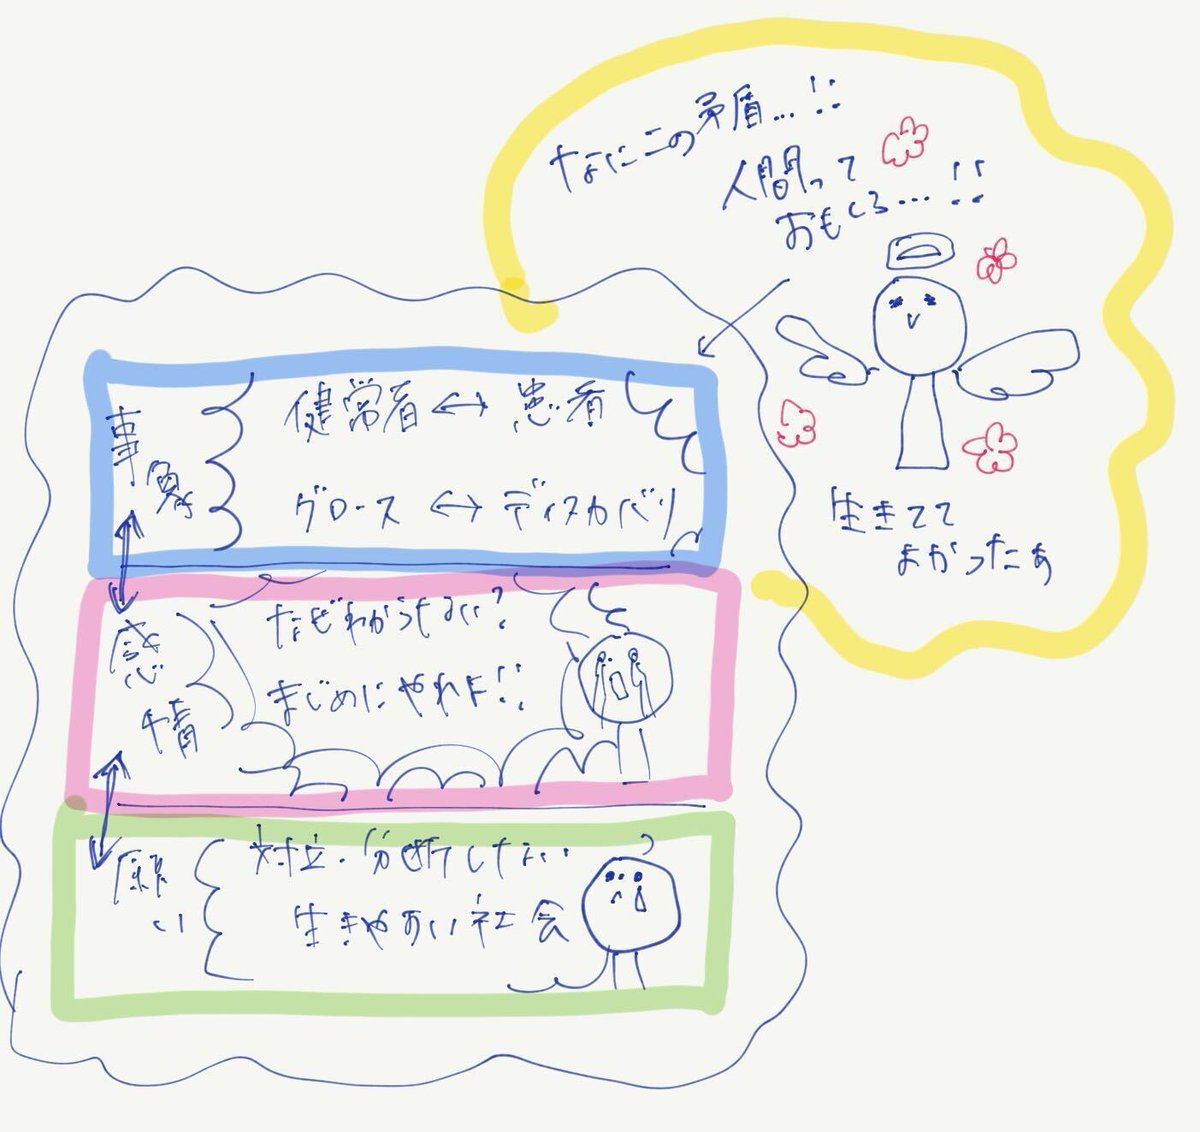 なにこの矛盾...!!
人間って
おもしろ...!!
生きてて
よかったぁ
事象
健常者↔患者
グロース↔ディスカバリ
感情
なぜわからない?
まじめにやれよ!!
願い
対立・分断しない
生きやすい社会